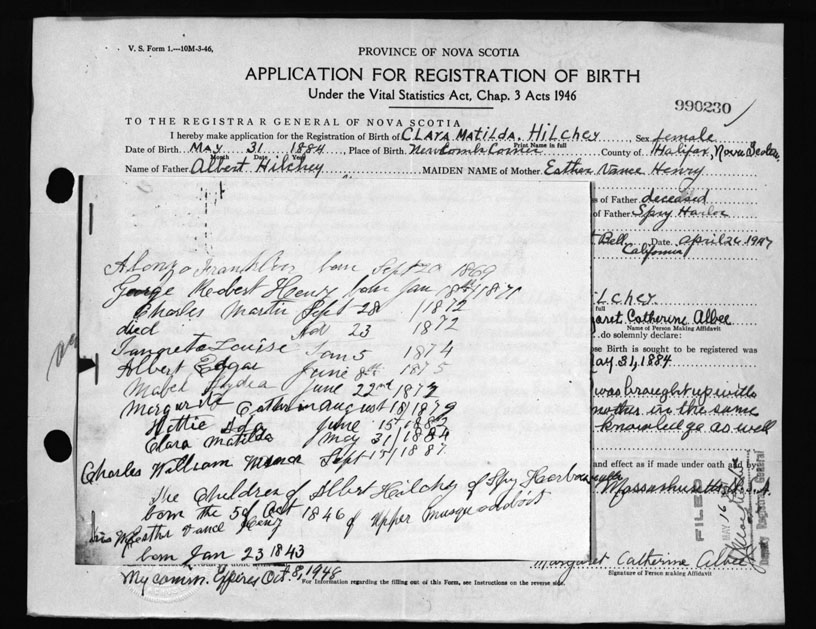 V. S. Form 1.—10M-3-46,
PROVINCE OF NOVA SCOTIA
APPLICATION FOR REGISTRATION OF BIRTH
Under the Vital Statistics Act, Chap. 3 Acts 1946
990230
TO THE REGISTRAR GENERAL OF NOVA SCOTIA
I hereby make application for the Registration of Birth of CLARA MATILDA. HILCHEY, Sex female
Print Name in full
Date of Birth May 31 1884, Place of Birth Newcomb Corner County of Halifax, Nova Scotia
Month Date Year
Name of Father Albert Hilchey MAIDEN NAME of Mother Esther Vance Henry
s of Father deceased
of Father Spry Harbor
Bell Date April 26 1947
California
Lchey
full
aret Catherine Albee
Name of Person Making Affidavit
do solemnly declare:
se Birth is sought to be registered was
ay 31, 1884
was brought up with
mother in the same
knowledge as well
and effect as if made under oath and by
Massachusetts
FILED
MAY 16
Deputy Registrar General
Margaret Catherine Albee
Signature of Person Making Affidavit
Alonzo Franklin born Sept 20 1869
George Herbert Henry born Jan 18th 1871
Charles Martin Sept 28 1872
died 23 1872
Louise Jan 5 1874
Albert Edgar June 8th 1875
Mabel Lydia June 22nd 1877
Margaret Catherine august 18 1879
Hottie Ada June 15 1882
Clara Matilda May 31 1884
Charles William Sept 17 1887
The Children of Albert Hilchey of Spry Harbour
born the 5 of Oct 1846 of Upper Musquodoboit
Esther Vance Henry
born Jan 23 1843
My comm. Expires Oct. 8, 1948
For Information regarding the filling out of this Form, see Instructions on the reverse side.